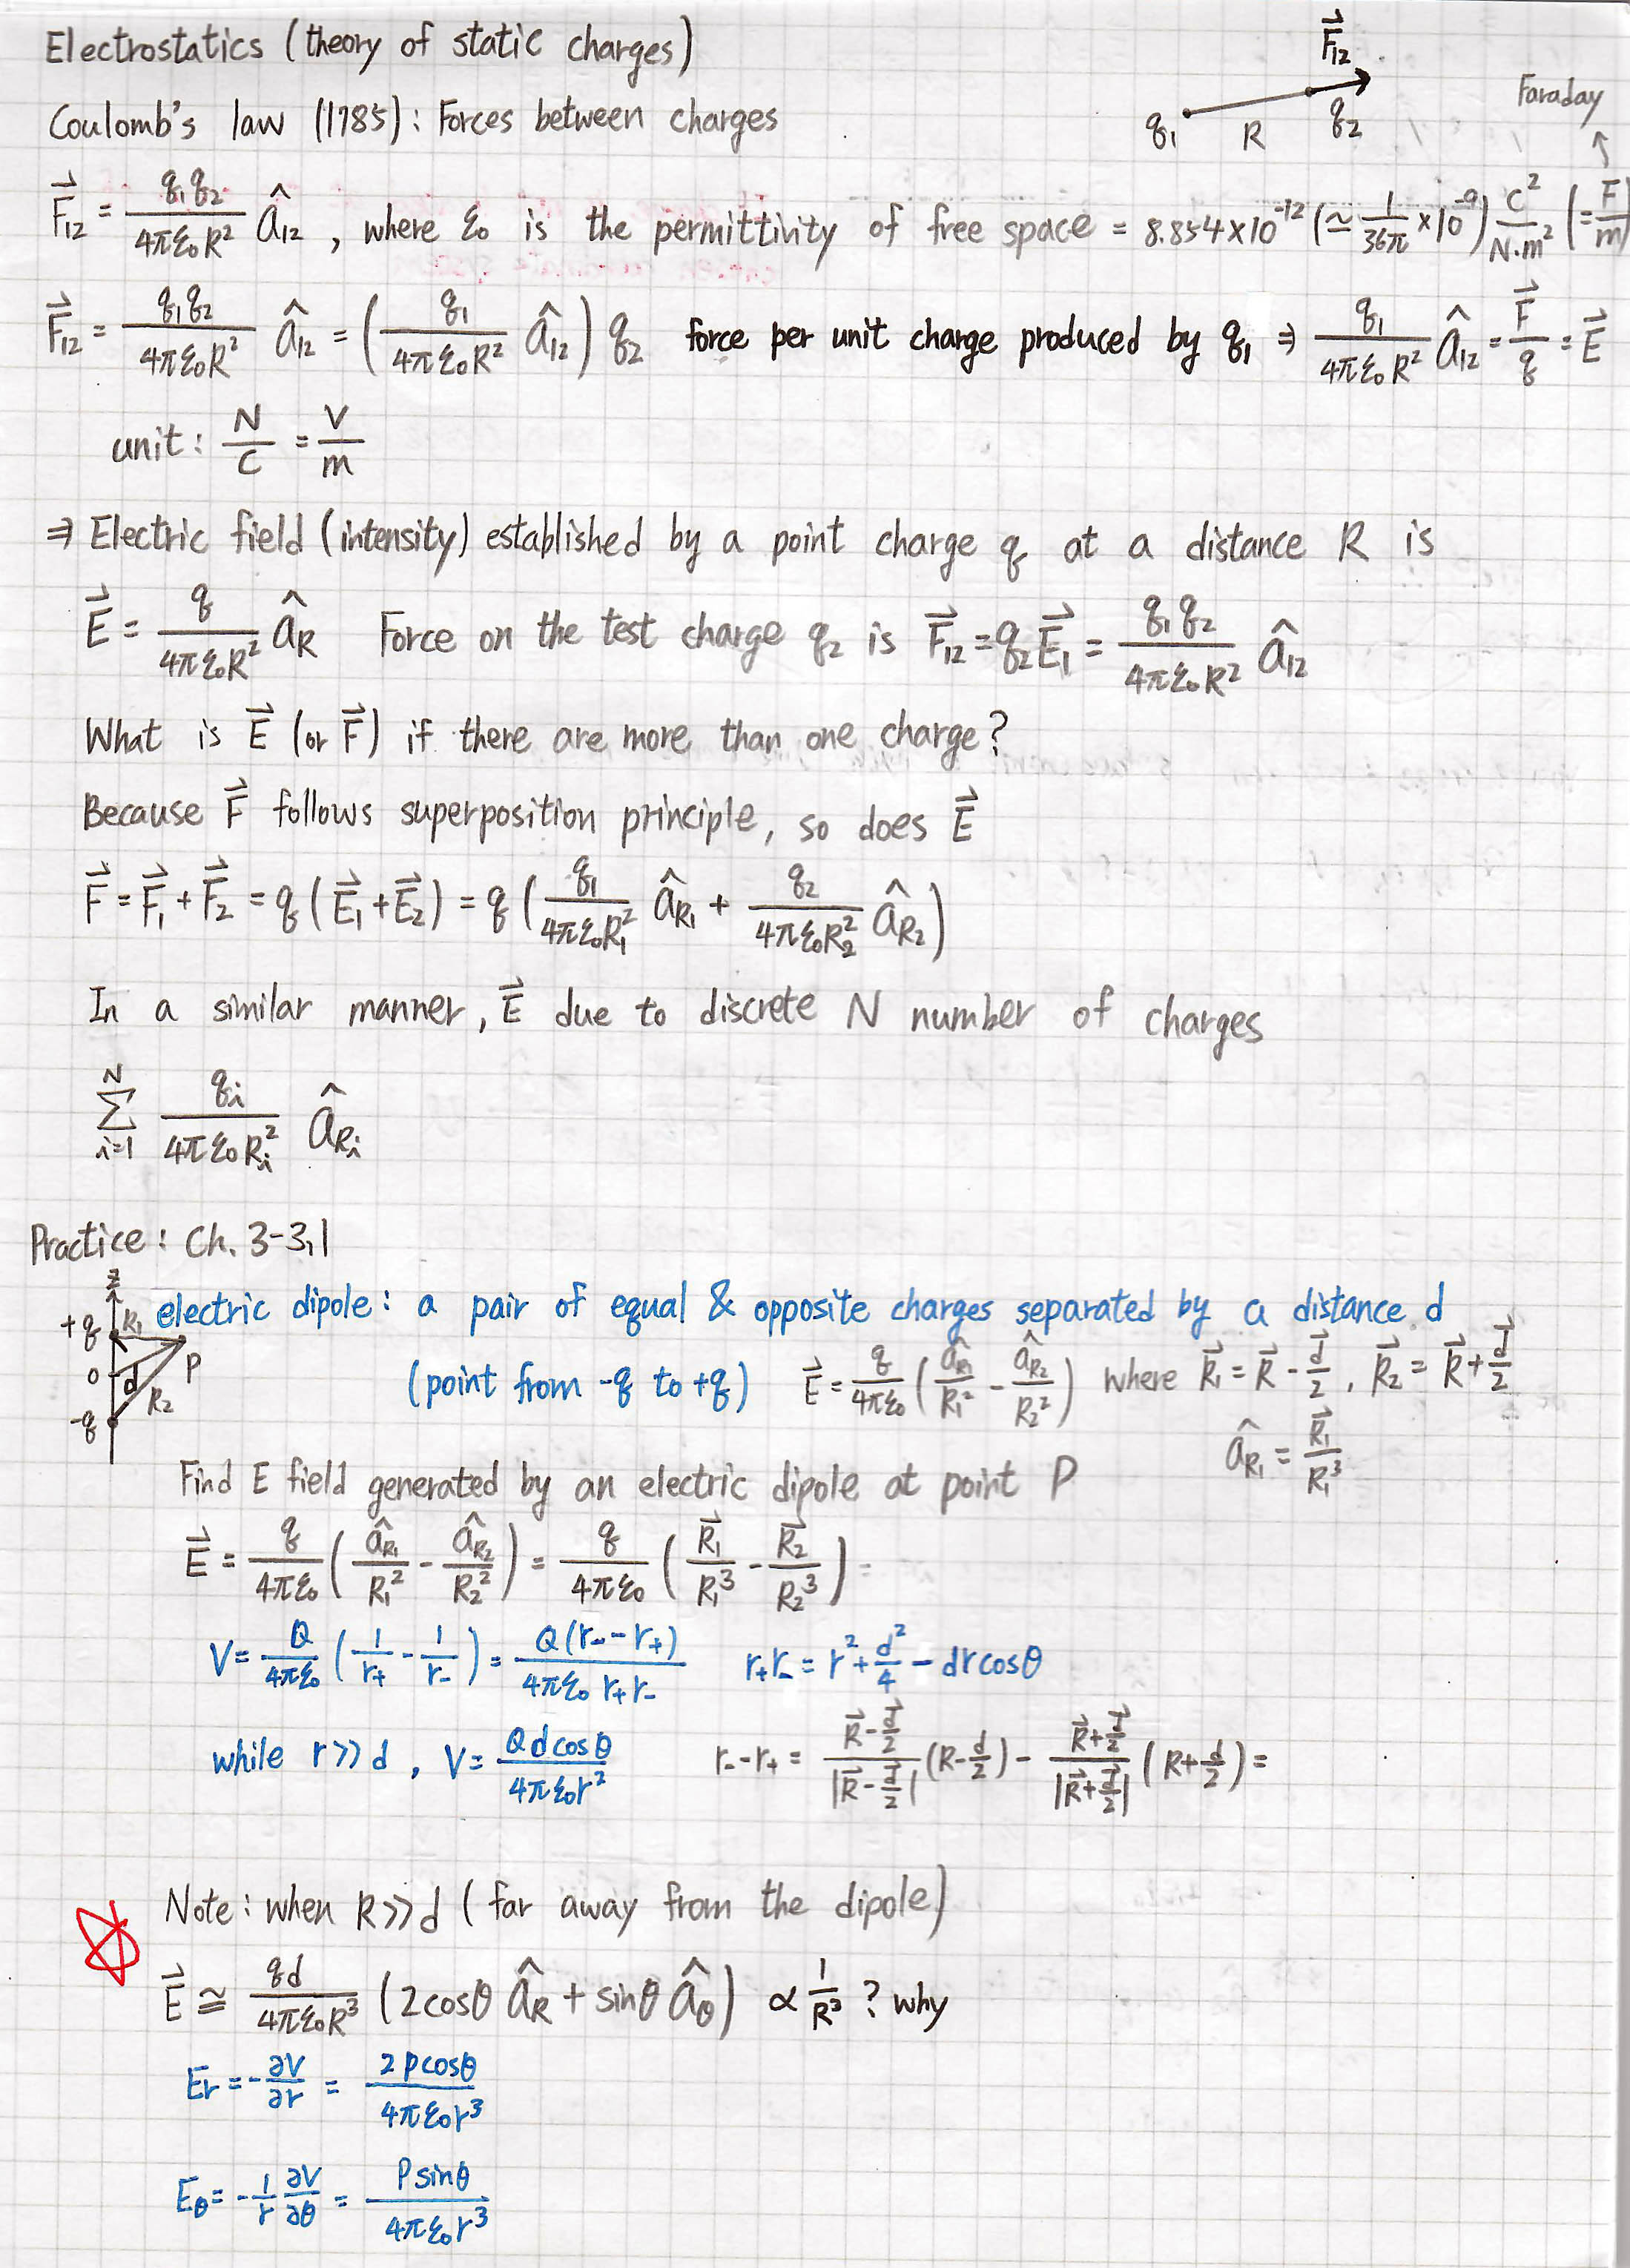 Electrostatics (theory of static charges)
F⃗₁₂
q₁ R q₂
Faraday
↑
Coulomb's law (1785): Forces between charges
F⃗₁₂ = q₁q₂/(4πε₀R²) â₁₂, where ε₀ is the permittivity of free space = 8.854×10⁻¹² (≃ 1/(36π) ×10⁻⁹) C²/(N·m²) (= F/m)
F⃗₁₂ = q₁q₂/(4πε₀R²) â₁₂ = (q₁/(4πε₀R²) â₁₂) q₂ force per unit charge produced by q₁ ⇒ q₁/(4πε₀R²) â₁₂ = F⃗/q = E⃗
unit: N/C = V/m
⇒ Electric field (intensity) established by a point charge q at a distance R is
E⃗ = q/(4πε₀R²) â_R Force on the test charge q₂ is F⃗₁₂ = q₂E⃗₁ = q₁q₂/(4πε₀R²) â₁₂
What is E⃗ (or F⃗) if there are more than one charge?
Because F⃗ follows superposition principle, so does E⃗
F⃗ = F⃗₁ + F⃗₂ = q(E⃗₁ + E⃗₂) = q(q₁/(4πε₀R₁²) â_R₁ + q₂/(4πε₀R₂²) â_R₂)
In a similar manner, E⃗ due to discrete N number of charges
∑_{i=1}^{N} q_i/(4πε₀R_i²) â_Ri
Practice: Ch. 3-3.1
z
+q R₁
0 d P
R₂
-q
electric dipole: a pair of equal & opposite charges separated by a distance d
(point from -q to +q) E⃗ = q/(4πε₀) (â_R₁/R₁² - â_R₂/R₂²) where R⃗₁ = R⃗ - d⃗/2, R⃗₂ = R⃗ + d⃗/2
â_R₁ = R⃗₁/R₁³
Find E field generated by an electric dipole at point P
E⃗ = q/(4πε₀) (â_R₁/R₁² - â_R₂/R₂²) = q/(4πε₀) (R⃗₁/R₁³ - R⃗₂/R₂³) =
V = Q/(4πε₀) (1/r₊ - 1/r₋) = Q(r₋ - r₊)/(4πε₀ r₊r₋) r₊r₋ = r² + d²/4 - dr cosθ
while r >> d, V = Qd cosθ/(4πε₀r²) r₋ - r₊ = (R⃗ - d⃗/2)/|R⃗ - d⃗/2| (R - d/2) - (R⃗ + d⃗/2)/|R⃗ + d⃗/2| (R + d/2) =
Note: when R >> d (far away from the dipole)
E⃗ ≅ qd/(4πε₀R³) (2cosθ â_R + sinθ â_θ) ∝ 1/R³ ? why
Er = -∂V/∂r = 2Pcosθ/(4πε₀r³)
Eθ = -1/r ∂V/∂θ = Psinθ/(4πε₀r³)